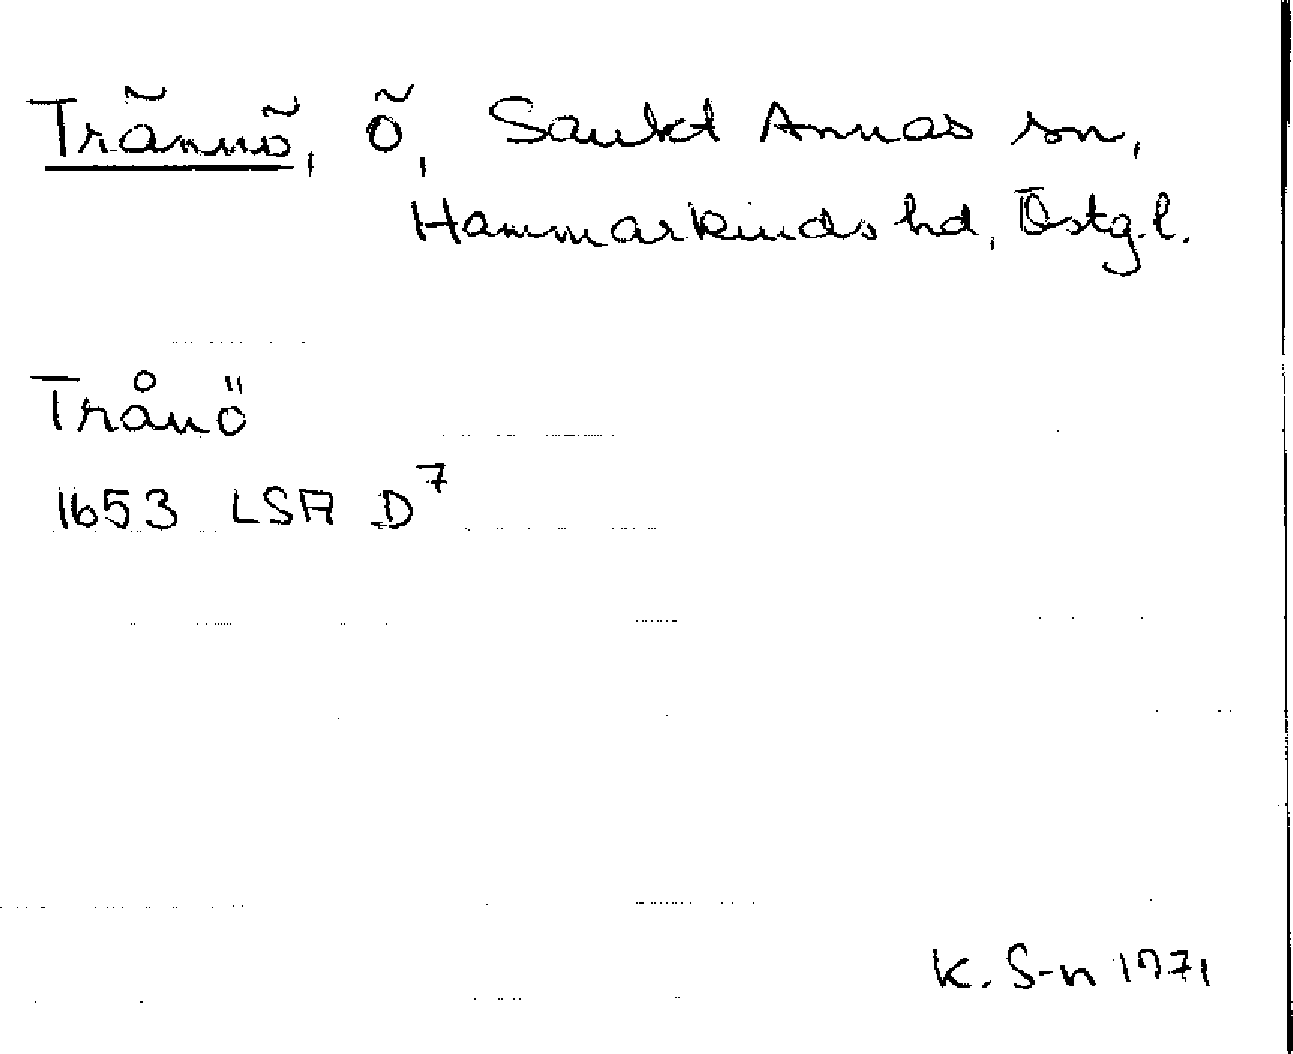 Trännö, ö, Sankt Annas sn,
Hammarkinds hd, Östg.l.
Trånö
1653 LSA D7
K. S-n 1971